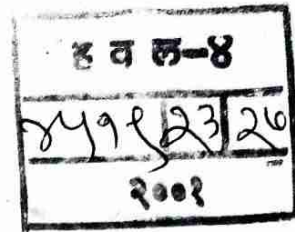 ह व ल-४
४५१९ २३ २७
२००१